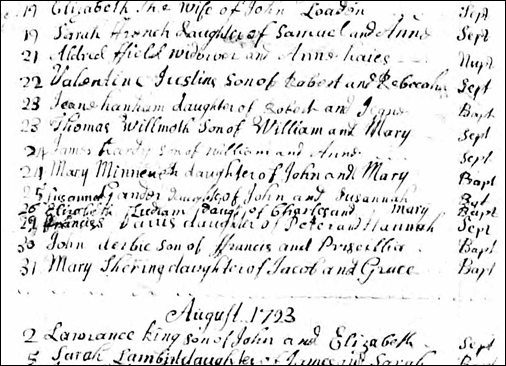 19 Elizabeth the Wife of John Loadon Sept
19 Sarah ffrench daughter of Samuel and Anne Sept
21 Aldred ffield widower and Anne haies Nupt
22 Valentine Son of Robert and Rebeccah Sept
23 Jeane hanham daughter of Robert and Jeane Bapt
23 Thomas Willmoth Son of William and Mary Sept
24 James Hardy son of william and Anne Sept
24 Mary Minneuch daughter of John and Mary Bapt
25 Susannah Gander daughter of John and Susannah Bpt
26 Elizabeth Ludham daugr of Charles and mary Bapt
29 ffrancis daughter of Peter and Hannah Sept
30 John derbie son of ffrancis and Priscillia Bapt
31 Mary Shering daughter of Jacob and Grace Bapt
August 1793
2 Lawrance king son of John and Elizabeth Sept
5 Sarah Lambird daughter of James and Sarah Bapt